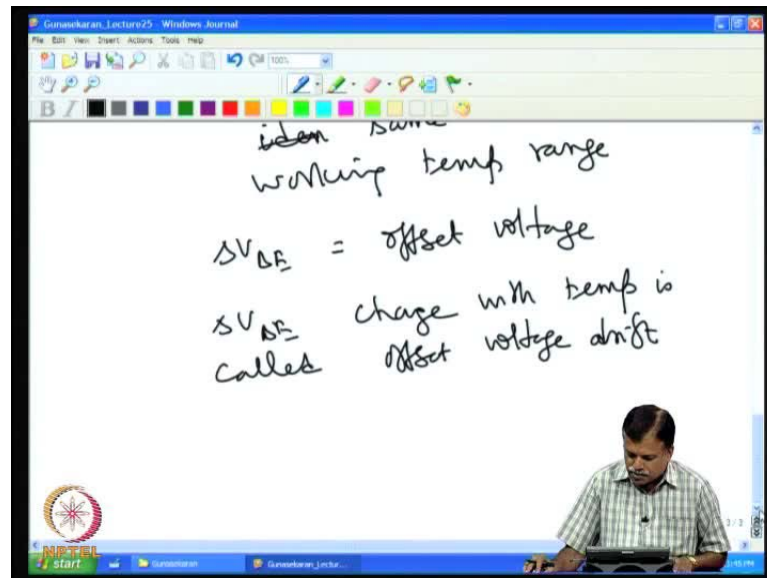 Gunasekaran_Lecture25 - Windows Journal
File Edit View Insert Actions Tools Help
100%
B I
iden same
working temp range
ΔV_BE = offset voltage
ΔV_BE chage with temp is
called offset voltage drift
NPTEL
3 / 3
start Gunasekaran Gunasekaran_Lectur...
3:45 PM